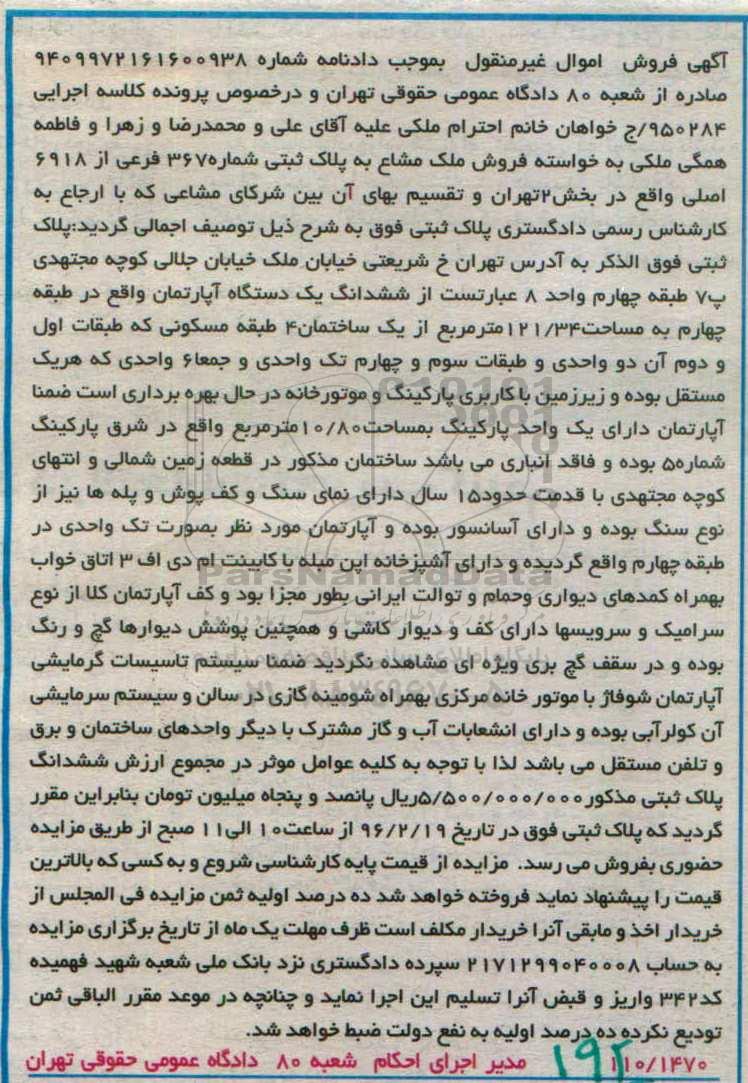 آگهی فروش اموال غیرمنقول بموجب دادنامه شماره ۹۴۰۹۹۷۲۱۶۱۶۰۰۹۳۸
صادره از شعبه ۸۰ دادگاه عمومی حقوقی تهران و درخصوص پرونده کلاسه اجرایی
۹۵۰۲۸۴/ج خواهان خانم احترام ملکی علیه آقای علی و محمدرضا و زهرا و فاطمه
همگی ملکی به خواسته فروش ملک مشاع به پلاک ثبتی شماره۳۶۷ فرعی از ۶۹۱۸
اصلی واقع در بخش۲تهران و تقسیم بهای آن بین شرکای مشاعی که با ارجاع به
کارشناس رسمی دادگستری پلاک ثبتی فوق به شرح ذیل توصیف اجمالی گردید:پلاک
ثبتی فوق الذکر به آدرس تهران خ شریعتی خیابان ملک خیابان جلالی کوچه مجتهدی
پ۷ طبقه چهارم واحد ۸ عبارتست از ششدانگ یک دستگاه آپارتمان واقع در طبقه
چهارم به مساحت۱۲۱/۳۴مترمربع از یک ساختمان۴ طبقه مسکونی که طبقات اول
و دوم آن دو واحدی و طبقات سوم و چهارم تک واحدی و جمعا۶ واحدی که هریک
مستقل بوده و زیرزمین با کاربری پارکینگ و موتورخانه در حال بهره برداری است ضمنا
آپارتمان دارای یک واحد پارکینگ بمساحت۱۰/۸۰مترمربع واقع در شرق پارکینگ
شماره۵ بوده و فاقد انباری می باشد ساختمان مذکور در قطعه زمین شمالی و انتهای
کوچه مجتهدی با قدمت حدود۱۵ سال دارای نمای سنگ و کف پوش و پله ها نیز از
نوع سنگ بوده و دارای آسانسور بوده و آپارتمان مورد نظر بصورت تک واحدی در
طبقه چهارم واقع گردیده و دارای آشپزخانه اپن مبله با کابینت ام دی اف ۳ اتاق خواب
بهمراه کمدهای دیواری وحمام و توالت ایرانی بطور مجزا بود و کف آپارتمان کلا از نوع
سرامیک و سرویسها دارای کف و دیوار کاشی و همچنین پوشش دیوارها گچ و رنگ
بوده و در سقف گچ بری ویژه ای مشاهده نگردید ضمنا سیستم تاسیسات گرمایشی
آپارتمان شوفاژ با موتور خانه مرکزی بهمراه شومینه گازی در سالن و سیستم سرمایشی
آن کولرآبی بوده و دارای انشعابات آب و گاز مشترک با دیگر واحدهای ساختمان و برق
و تلفن مستقل می باشد لذا با توجه به کلیه عوامل موثر در مجموع ارزش ششدانگ
پلاک ثبتی مذکور۵/۵۰۰/۰۰۰/۰۰۰ریال پانصد و پنجاه میلیون تومان بنابراین مقرر
گردید که پلاک ثبتی فوق در تاریخ ۹۶/۲/۱۹ از ساعت۱۰ الی۱۱ صبح از طریق مزایده
حضوری بفروش می رسد. مزایده از قیمت پایه کارشناسی شروع و به کسی که بالاترین
قیمت را پیشنهاد نماید فروخته خواهد شد ده درصد اولیه ثمن مزایده فی المجلس از
خریدار اخذ و مابقی آنرا خریدار مکلف است ظرف مهلت یک ماه از تاریخ برگزاری مزایده
به حساب ۲۱۷۱۲۹۹۰۴۰۰۰۸ سپرده دادگستری نزد بانک ملی شعبه شهید فهمیده
کد۳۴۲ واریز و قبض آنرا تسلیم این اجرا نماید و چنانچه در موعد مقرر الباقی ثمن
تودیع نکرده ده درصد اولیه به نفع دولت ضبط خواهد شد.
۱۱۰/۱۴۷۰ مدیر اجرای احکام شعبه ۸۰ دادگاه عمومی حقوقی تهران
ParsNamadData